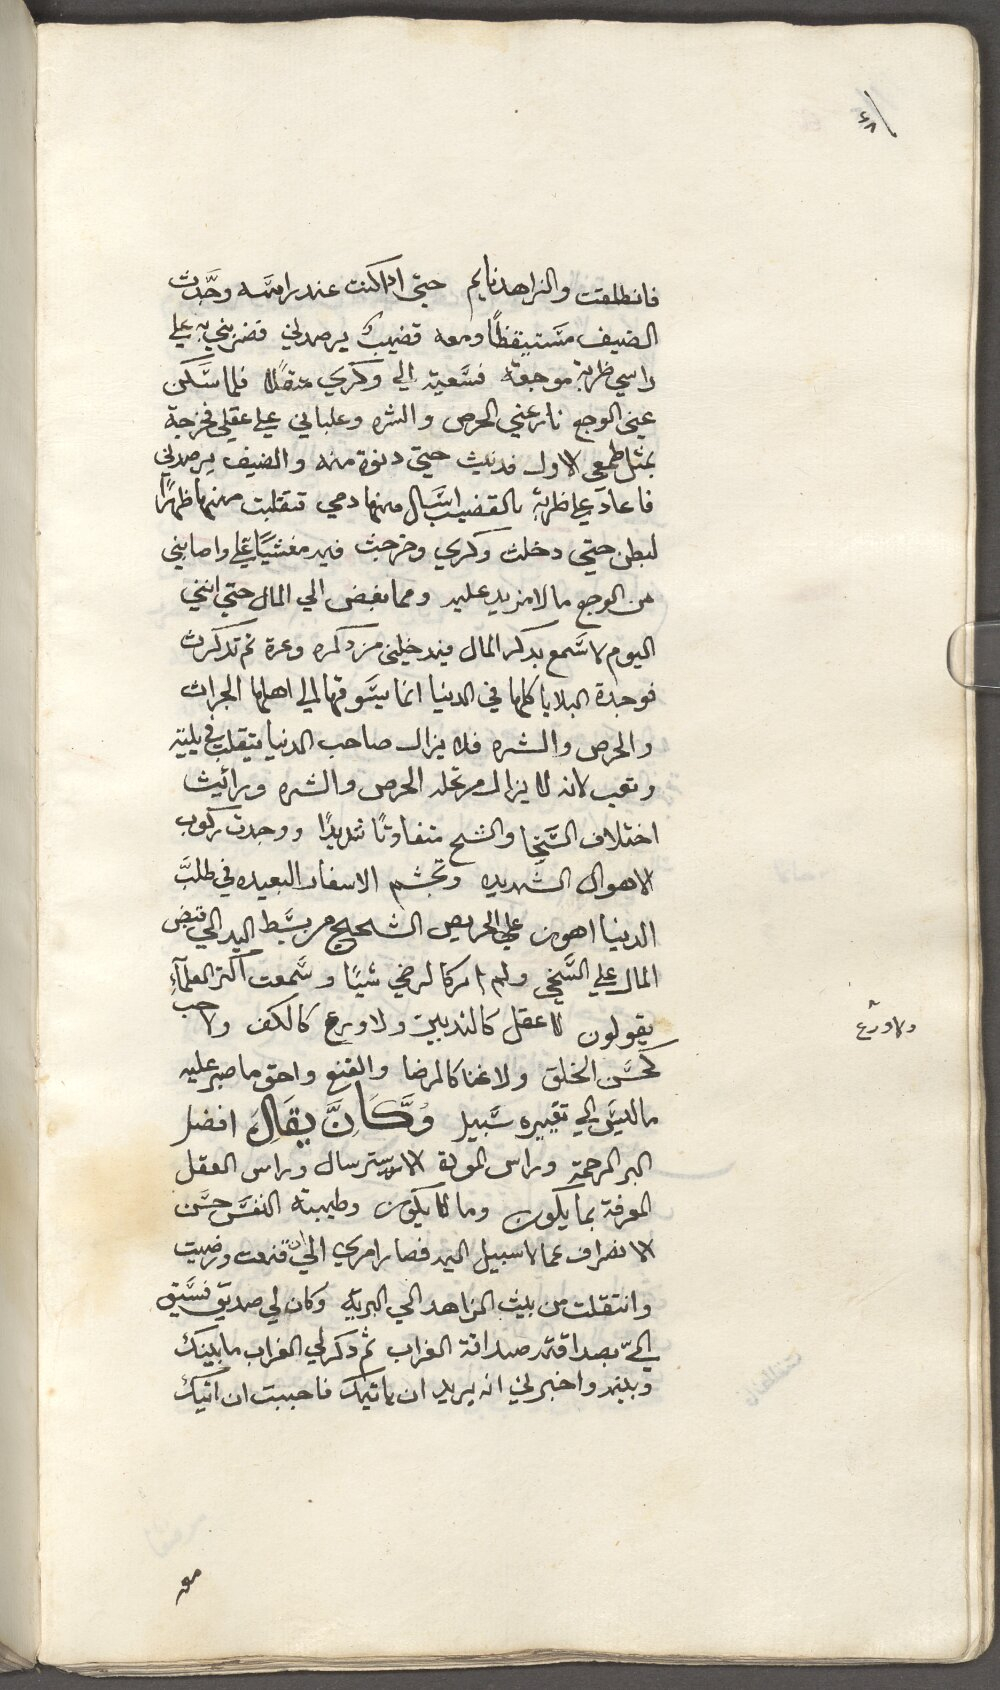 ٤٨
فانطلقت والزاهد نايم حتى اذا كنت عند راسه وجدت
الضيف مستيقظًا ومعه قضيبٌ يرصدني فضربني به علي
راسي ضربة موجعة فسعية الي وكري متقلًا فلما سكن
عني الوجع نازعني الحرص والشره وغلباني علي عقلي فخرجة
بمثل طمعي الاول فدنيت حتي دنوة منه والضيف يرصدني
فاعاد علي ضربة بالقضيب اسال منها دمي تتقلبت منها ظهرًا
لبطن حتي دخلت وكري وخرجت فيه مغشيًا علي واصابني
من الوجع ما لا مزيد عليه ومما بغض الي المال حتي انني
اليوم لا سمع بذكر المال فيدخلني من ذكره وعرة ثم تذكرت
فوجدة البلايا كلها في الدنيا انما يسوقها الي اهلها الجرات
والحرص والشره فلا يزال صاحب الدنيا يتقلب في بلية
وتعب لانه لا يزال مرتحله الحرص والشره ورائيت
اختلاف السخا والشح متفاوتًا شديدًا ووجدت ركوب
الاهوال الشديده وتجشم الاسفار البعيده في طلب
الدنيا اهون علي الحريص الشحيح من بسط اليد الي قبض
المال علي السخي ولم ار كالرضي شيًا وسمعت اكثر العلمآء
يقولون لا عقل كالتدبير ولا ورع كالكف ولا حب
ولا ورع
كحسن الخلق ولا غنا كالرضا والقنع واحق ما صبر عليه
ما ليس الي تغييره سبيل وَكَانَ يقَالَ افضل
البر الرحمة وراس المودة الاسترسال وراس العقل
المعرفة بما يكون وما لا يكون وطيبة النفس حسن
الانصراف عما لا سبيل اليه فصار امري الي ان قنعت ورضيت
وانتقلت من بيت الزاهد الي البرية وكان لي صديق فسيق
اليّ بصداقته صداقة الغراب ثم ذكر لي الغراب ما بينك
وبينه واخبرني انه يريد ان ياتيك فاحببت ان اتيك
معه